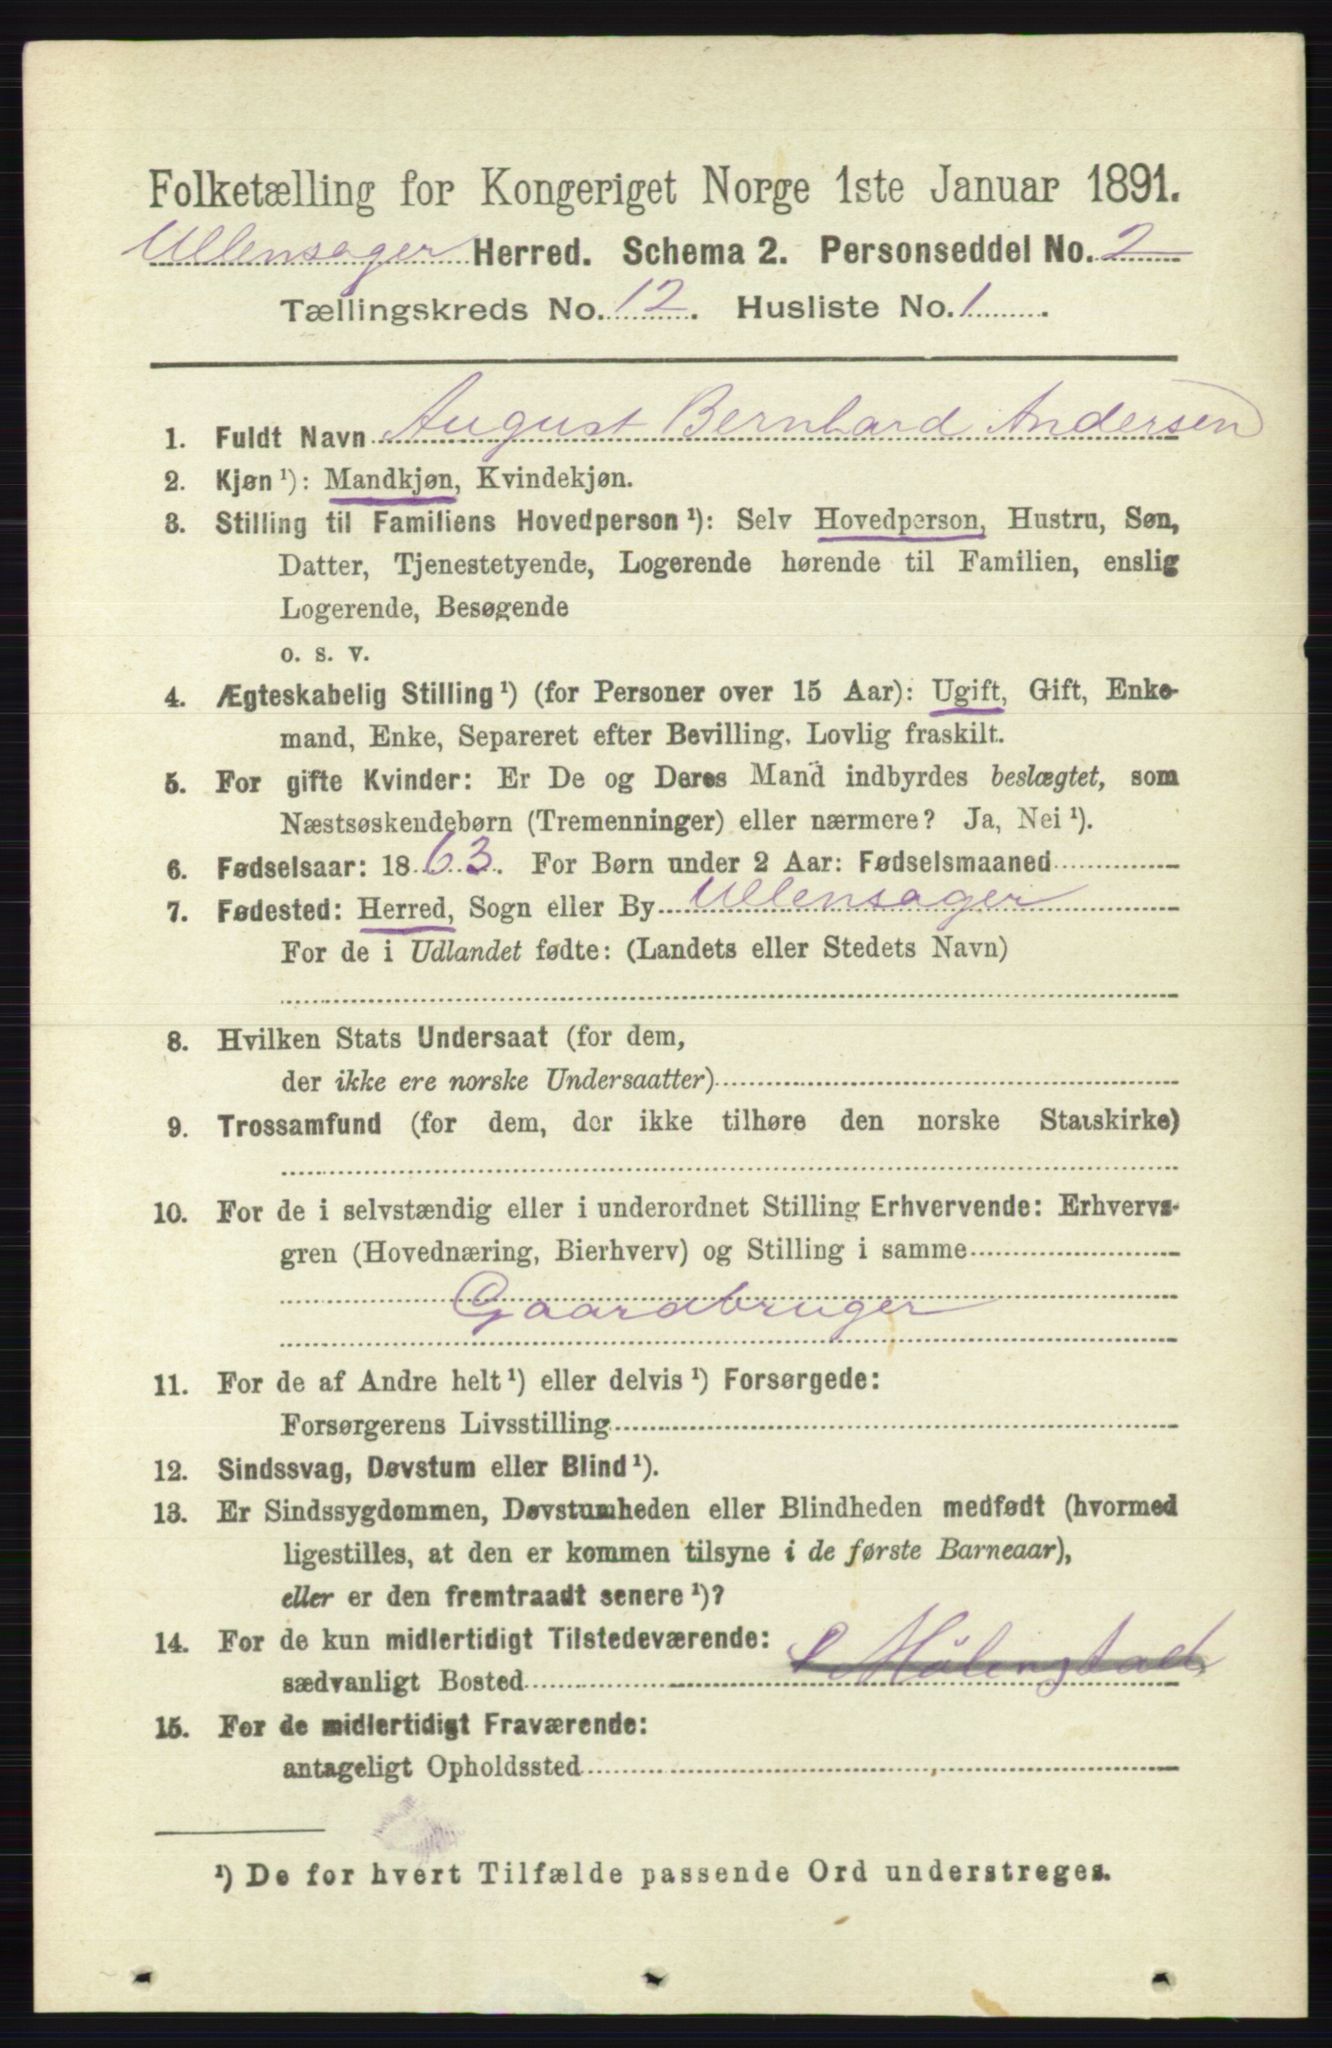 Folketælling for Kongeriget Norge 1ste Januar 1891.
Ullensager Herred. Schema 2. Personseddel No. 2
Tællingskreds No. 12. Husliste No. 1.
1. Fuldt Navn August Bernhard Andersen
2. Kjøn ¹): Mandkjøn, Kvindekjøn.
3. Stilling til Familiens Hovedperson ¹): Selv Hovedperson, Hustru, Søn,
Datter, Tjenestetyende, Logerende hørende til Familien, enslig
Logerende, Besøgende
o. s. v.
4. Ægteskabelig Stilling ¹) (for Personer over 15 Aar): Ugift, Gift, Enke-
mand, Enke, Separeret efter Bevilling. Lovlig fraskilt.
5. For gifte Kvinder: Er De og Deres Mand indbyrdes beslægtet, som
Næstsøskendebørn (Tremenninger) eller nærmere? Ja, Nei ¹).
6. Fødselsaar: 1863. For Børn under 2 Aar: Fødselsmaaned
7. Fødested: Herred, Sogn eller By Ullensager
For de i Udlandet fødte: (Landets eller Stedets Navn)
8. Hvilken Stats Undersaat (for dem,
der ikke ere norske Undersaatter)
9. Trossamfund (for dem, der ikke tilhøre den norske Statskirke)
10. For de i selvstændig eller i underordnet Stilling Erhvervende: Erhvervs-
gren (Hovednæring, Bierhverv) og Stilling i samme
Gaardbruger
11. For de af Andre helt ¹) eller delvis ¹) Forsørgede:
Forsørgerens Livsstilling
12. Sindssvag, Døvstum eller Blind ¹).
13. Er Sindssygdommen, Døvstumheden eller Blindheden medfødt (hvormed
ligestilles, at den er kommen tilsyne i de første Barneaar),
eller er den fremtraadt senere ¹)?
14. For de kun midlertidigt Tilstedeværende:
sædvanligt Bosted
15. For de midlertidigt Fraværende:
antageligt Opholdssted
¹) De for hvert Tilfælde passende Ord understreges.